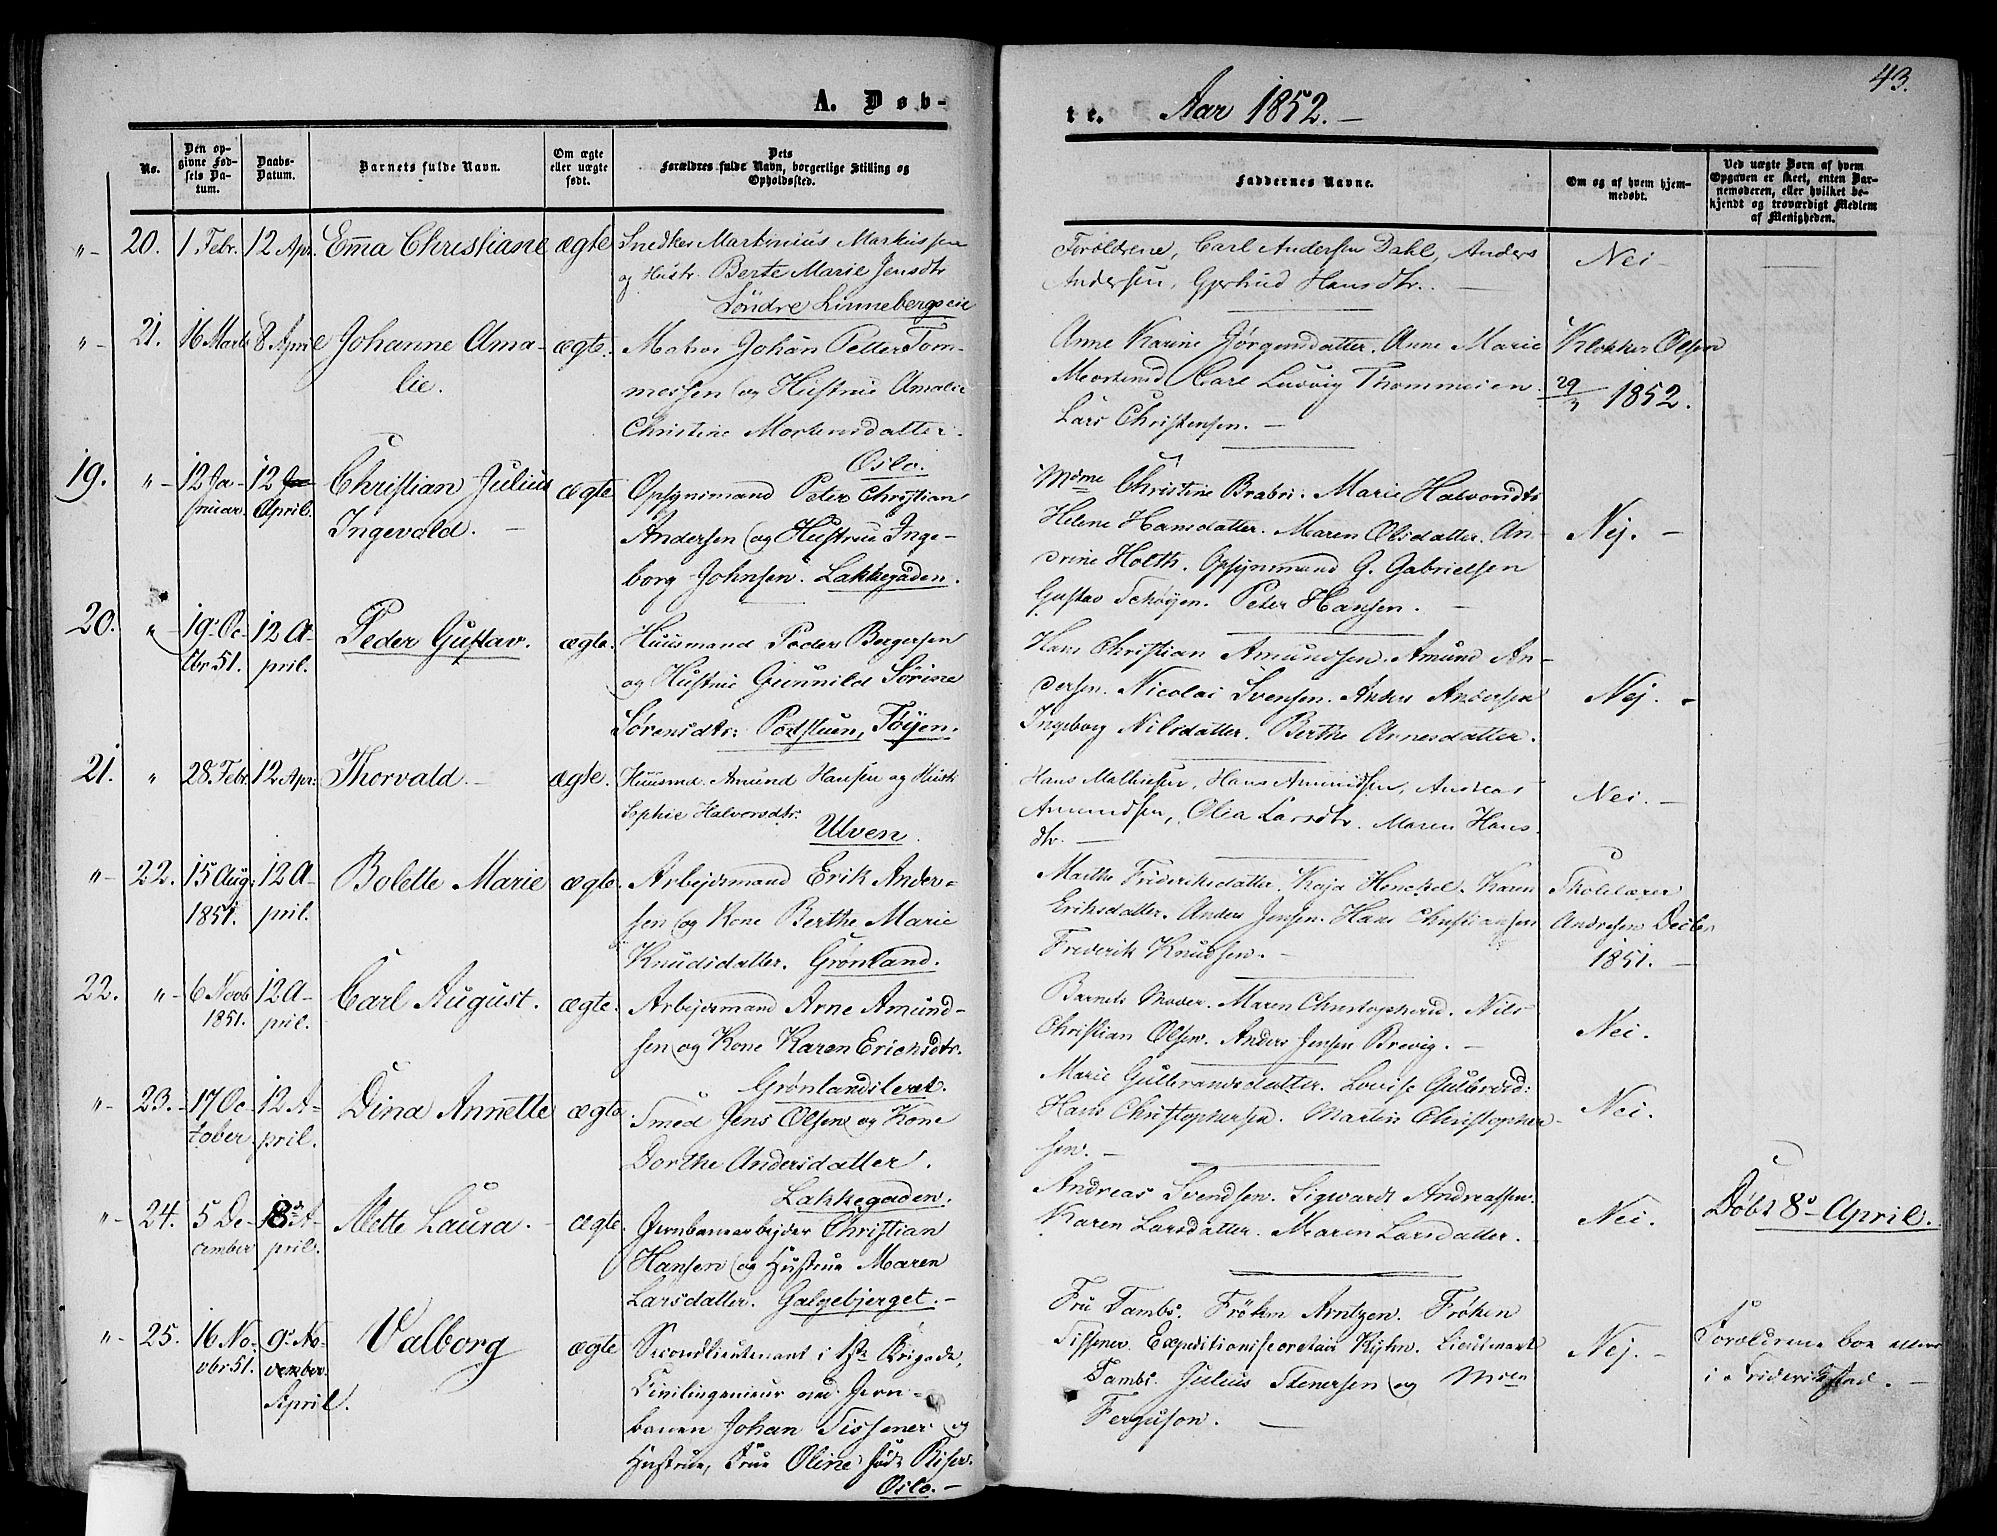 43.
A. Døb-
te. Aar 1852.-
No.
Den op-
givne Fød-
sels Da-
tum.
Daabs-
Datum.
Barnets fulde Navn.
Om ægte
eller uægte
født.
Dets
Forældres fulde Navn, borgerlige Stilling og
Opholdssted.
Faddernes Navne.
Om og af hvem hjem-
medøbt.
Ved uægte Born af hvem
Opgaven er skeet, enten Bar-
nemoderen, eller hvilket be-
kjendt og troværdigt Medlem
af Menigheden.
"- 20. 1 Febr. 12 Apr. Emma Christiane ægte
Snedker Martinius Markussen
og Hustr. Berte Marie Jensdtr
Søndre Linnebergseie
Forældrene, Carl Andersen Dahl, Anders
Andersen, Gjertrud Hansdtr. -
Nei -
"- 21. 16 Marts 8 April Johanne Ama-
lie. ægte.
Matros Johan Petter Tom-
messen og Hustrue Amalie
Christine Mortensdatter.
Oslo.
Anne Karine Jørgensdatter. Anne Marie
Mortensd. Carl Ludvig Thommesen.
Lars Christensen. -
Klokker Olsen
29/3 1852.
19. "- 12 Ja-
nuar 12
April. Christian Julius
Ingevald. - ægte
Opsynsmand Peter Christian
Andersen og Hustrue Inge-
borg Johnsen. Lakkegaden.
Mdme Christine Brabri. Marie Halvorsdtr
Helene Hansdatter. Maren Olsdatter. An-
drine Holth. Opsynsmand G. Gabrielsen
Gustav Schøyen. Peter Hansen. -
Nej. -
20. "- 19 Oc-
tbr 51. 12 A-
pril. Peder Gustav. ægte.
Huusmand Peder Bergersen
og Hustrue Gunnild Sørine
Sørensdtr: Podstuen, Tøyen.
Hans Christian Amundsen. Amund An-
dersen. Nicolai Svensen. Anders Andersen
Ingeborg Nilsdatter. Berthe Arnesdatter.
Nej. -
21. " 28. Febr. 12 Apr: Thorvald - ægte.
Huusmd. Amund Hansen og Hustr
Sophie Halvorsdtr.
Ulven.
Hans Mathiesen, Hans Amundsen, Andreas
Amundsen, Olia Larsdtr. Maren Hans-
dtr. -
Nei. -
"- 22. 15 Aug.
1851. 12 A-
pril. Bolette Marie ægte.
Arbejdsmand Erik Ander-
sen og Kone Berthe Marie
Knudsdatter. Grønland.
Marthe Frideriksdatter. Kaja Henckel. Karen
Eriksdatter. Anders Jensen. Hans Christiansen
Frederik Knudsen. -
Skolelærer
Andresen Decbr
1851. -
22. "- 6 Novb
1851. 12 A-
pril. Carl August. ægte.
Arbejdsmand Arne Amund-
sen og Kone Karen Erichsdtr.
Grønlandsleret.
Barnets Moder. Maren Christophersd. Nils
Christian Olsen. Anders Jensen Brevig. -
Nei.
"- 23. 17 Oc-
tober 12 A-
pril. Dina Annette ægte.
Smed Jens Olsen og Kone
Dorthe Andersdatter.
Lakkegaden.
Marie Gulbrandsdatter. Lovise Gulbrsd:
Hans Christophersen. Martin Christopher-
sen. -
Nei.
"- 24. 5 De-
cember 8de A-
pril. Mette Laura. - ægte.
Jernbanearbejder Christian
Hansen og Hustrue Maren
Larsdatter. Galgebjerget. -
Andreas Svendsen. Sigwardt Andreassen.
Karen Larsdatter. Maren Larsdatter.
Nei.
Døbt 8de April.
"- 25. 16 No-
vbr 51. 9de No-
vember.
April. Valborg ægte
Secondlieutenant i 1ste Brigade,
Civilingenieur ved Jern-
banen Johan Tissener og
Hustrue, Frue Oline født Riser.
Oslo. -
Fru Tambs. Frøken Arntzen. Frøken
Tissener. Expeditionssecretair Kyhn. Lieutenant
Tambs. Julius Stenersen og Mdm
Ferguson. -
Nej. -
Forældrene boe ellers
i Frideriksstad. -